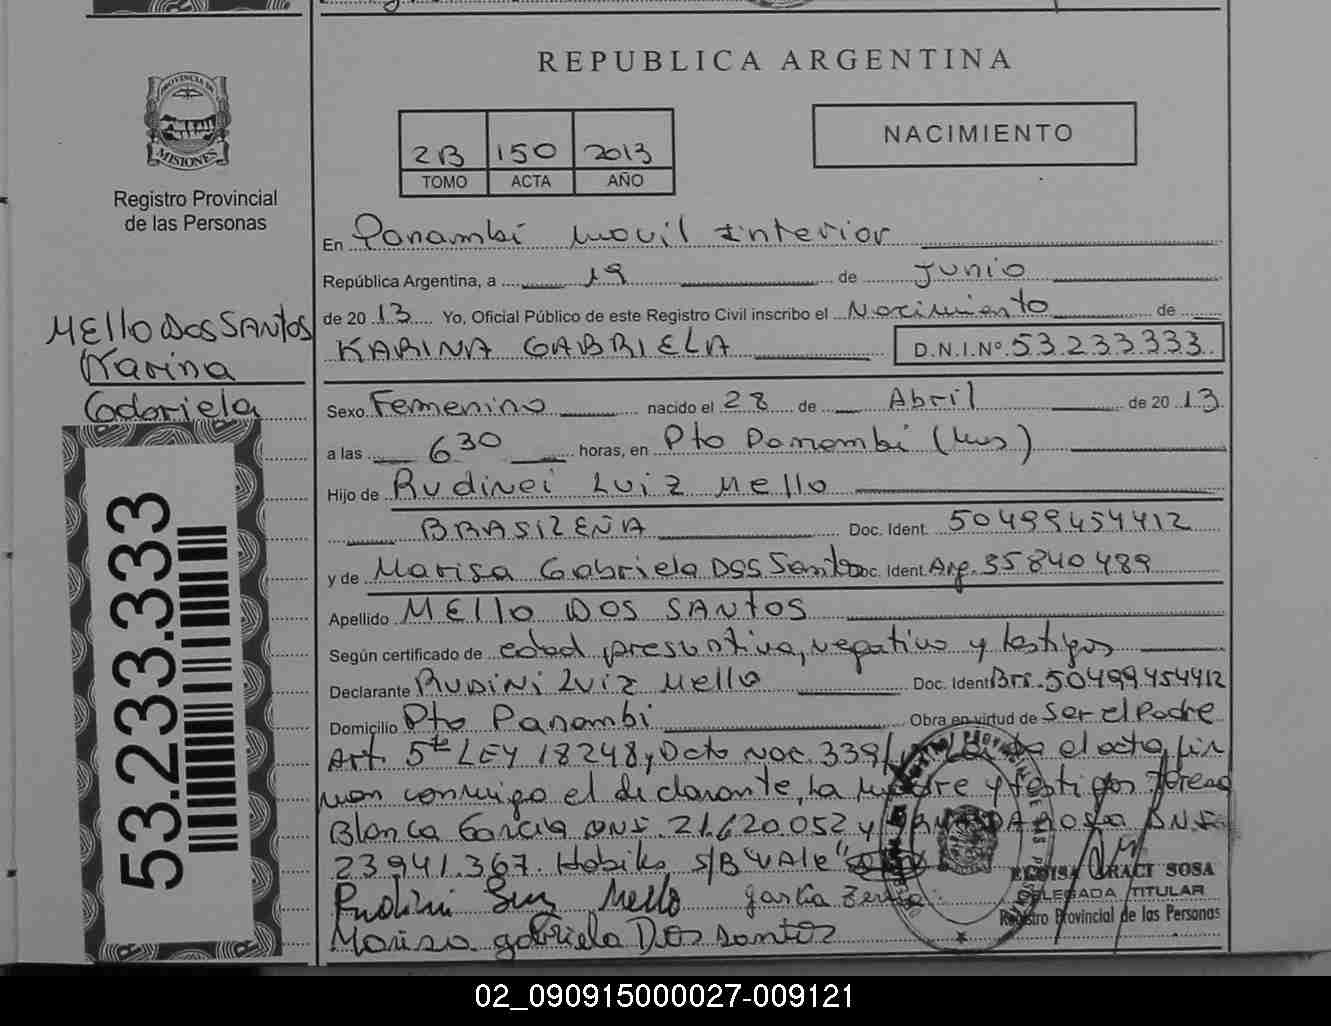 REPUBLICA ARGENTINA
PROVINCIA DE
MISIONES
Registro Provincial
de las Personas
2B 150 2013
TOMO ACTA AÑO
NACIMIENTO
En Panambi Movil Interior
República Argentina, a 19 de Junio
de 2013 Yo, Oficial Público de este Registro Civil inscribo el Nacimiento de
KARINA GABRIELA D.N.I.Nº 53.233.333
MEllO DOS SANtOS
Karina
Gabriela
Sexo Femenino nacido el 28 de Abril de 2013
a las 630 horas, en Pto Panambi (Mns)
Hijo de Rudinei Luiz Mello
BRASILEÑA Doc. Ident. 50499454412
y de Marisa Gabriela Dos Santos Doc. Ident. Arg. 35840489
Apellido MEllO DOS SANtOS
Según certificado de edad presuntiva, negativo y testigos
Declarante RUDINI LUIZ Mello Doc. Ident Brs. 50499454412
Domicilio Pto Panambi Obra en virtud de Ser el Padre
Art. 5to LEY 18248, Dcto Nac. 339/ el acta, fir
man conmigo el declarante, la Madre y testigos Teresa
Blanca Garcia DNI. 21.620.052 y DA ROSA DNI.
23941.367. Habiks s/B "VALE"
Rudini Luiz Mello garcia Teresa
Marisa gabriela Dos santos
ELOISA GRACI SOSA
DELEGADA TITULAR
Registro Provincial de las Personas
53.233.333
02_090915000027-009121